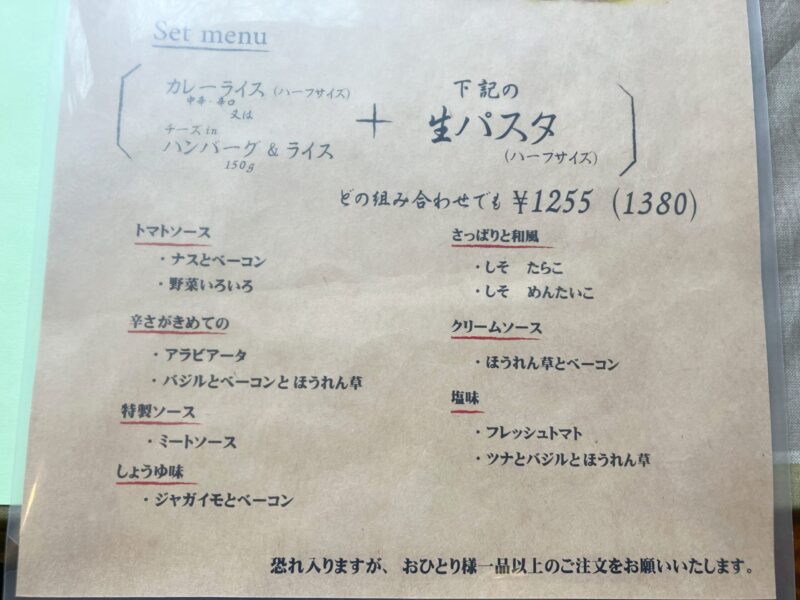 Set menu
カレーライス (ハーフサイズ)
中辛・辛口
又は
チーズ in
ハンバーグ & ライス
150g
+
下記の
生パスタ
(ハーフサイズ)
どの組み合わせでも ¥1255 (1380)
トマトソース
・ナスとベーコン
・野菜いろいろ
辛さがきめての
・アラビアータ
・バジルとベーコンとほうれん草
特製ソース
・ミートソース
しょうゆ味
・ジャガイモとベーコン
さっぱりと和風
・しそ たらこ
・しそ めんたいこ
クリームソース
・ほうれん草とベーコン
塩味
・フレッシュトマト
・ツナとバジルとほうれん草
恐れ入りますが、おひとり様一品以上のご注文をお願いいたします。